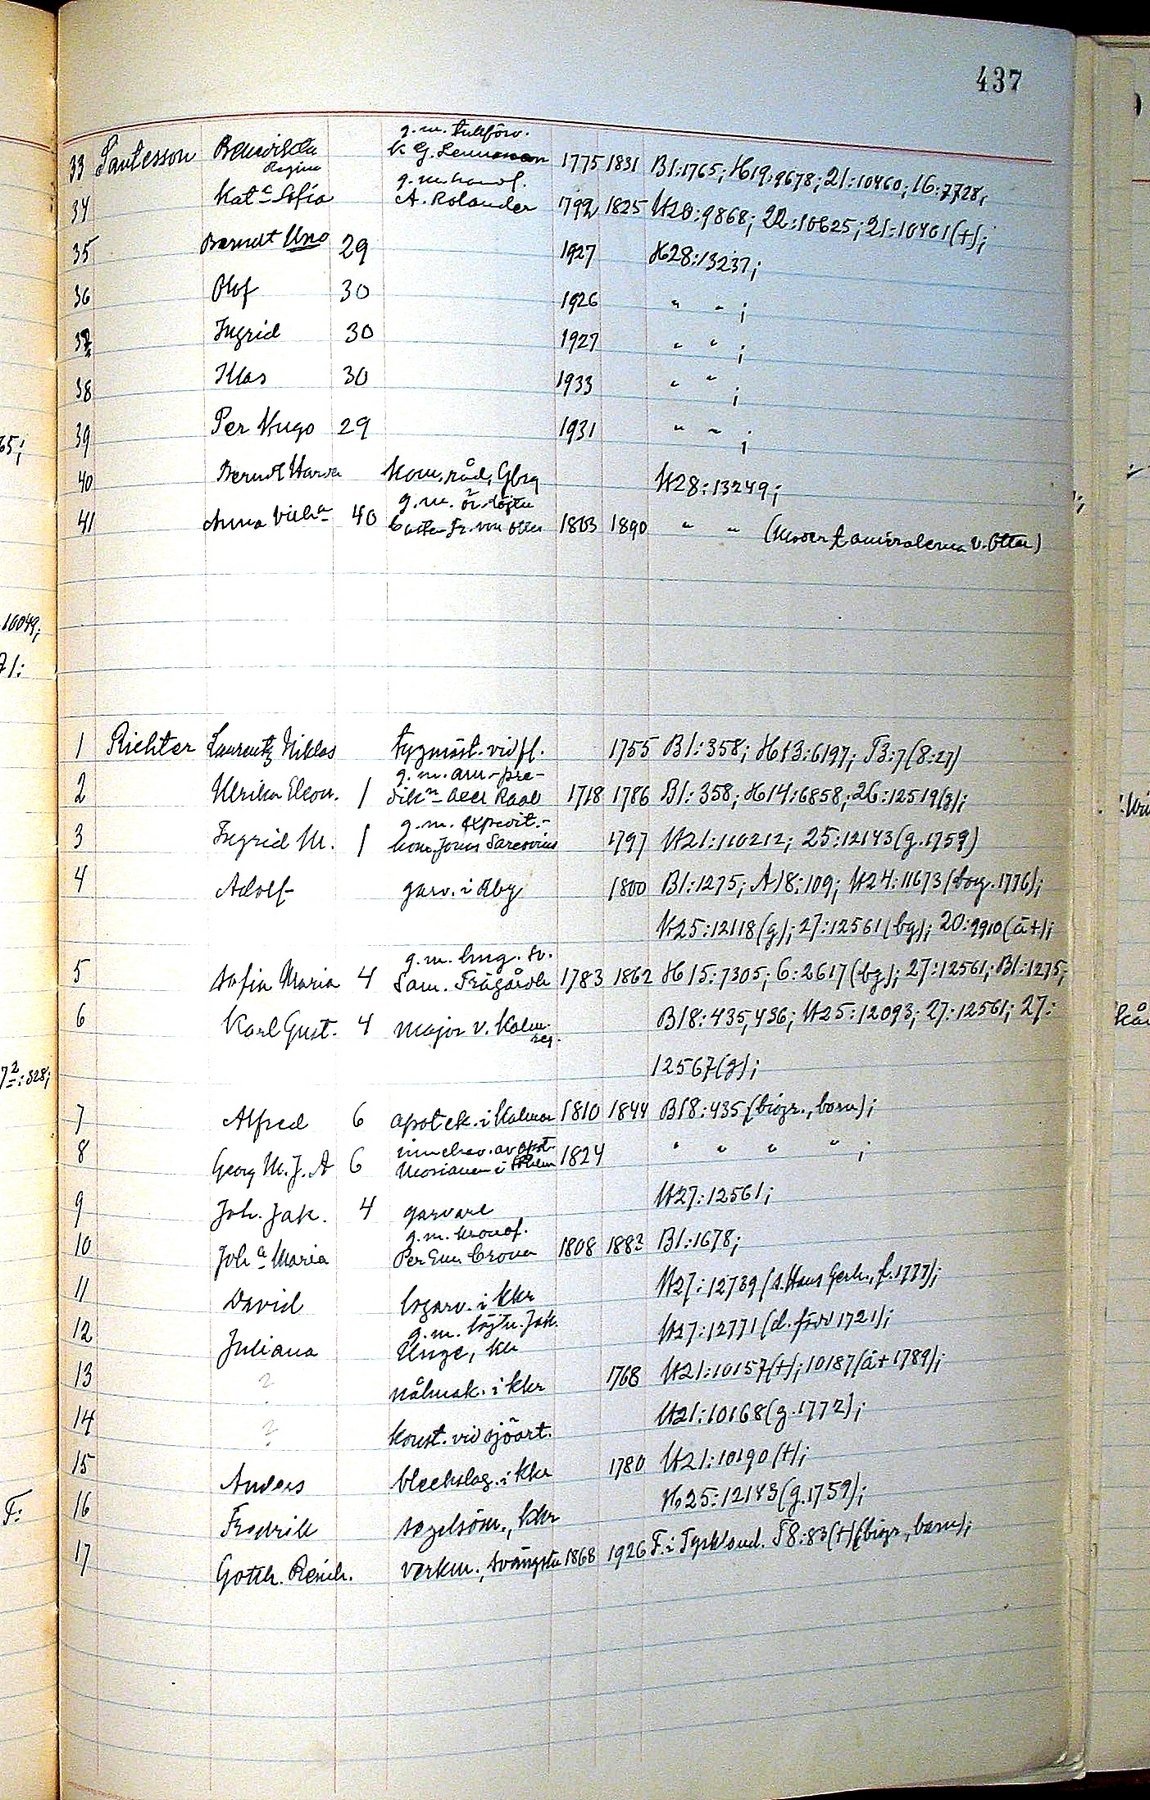 437
g.m. tullförv.
33 Santesson Regina 1775 1831 B1:1765; H19:9678; 21:10460; 16:7728;
g.m. handl.
34 Kata Sofia A. Rolander 1792 1825 H20:9868; 22:10625; 21:10401(+);
35 Berndt Uno 29 1927 H28:13237;
36 Olof 30 1926 " " ;
37 Ingrid 30 1927 " " ;
38 Klas 30 1933 " " ;
39 Per Hugo 29 1931 " " ;
40 Berndt Kom.råd, Gbrg H28:13249;
41 Anna Vilh:a 40 g.m. Fr. von Otter 1803 1890 " " (moder t. amiralerna v. Otter)
1 Richter Laurentz Niklas tygmäst. vid fl. 1755 B1:358; H13:6197; T3:7(8:27)
g.m. am.-pre-
2 Ulrika Eleon. 1 dikn Raab 1718 1786 B1:358; H14:6858; 26:12519(g);
g.m. expedit.-
3 Ingrid M. 1 kom. Jonas 1797 H21:110212; 25:12143(g.1759)
4 Adolf garv. i Rby 1800 B1:1275; A18:109; H24:11673(borg.1776);
H25:12118(g); 27:12561(bg); 20:9910(ä+);
5 Sofia Maria 4 Sam. Trägårdh 1783 1862 H15:7305; 6:2617(bg); 27:12561; B1:1275;
6 Karl Gust. 4 major v. Kalm. reg. B18:435,436; H25:12093; 27:12561; 27:
12567(g);
7 Alfred 6 apotek. i Kalmar 1810 1844 B18:435(biogr., barn);
8 Georg M.J.A 6 innehav. av apot. i Sthlm 1824 " " " " ;
9 Joh. Jak. 4 garvare H27:12561;
g.m. kronof.
10 Joh:a Maria Per Em. 1808 1882 B1:1678;
11 David i Kkr H27:12739(s. Hans Gerh., f.1777);
g.m. löjtn. Jak.
12 Juliana Unge, Kkr H27:12771(d. förv 1721);
13 ? nålmak. i Kkr 1768 H21:10157(+); 10187(ä+1789);
14 ? konst. vid sjöart. H21:10168(g.1772);
15 Anders bleckslag. i Kkr 1780 H21:10190(+);
16 Fredrik segelsöm., Kkr H25:12143(g.1759);
17 Gotth. Reinh. verkm., Svängsta 1868 1926 F. i Tyskland. T8:83(+)(biogr., barn);